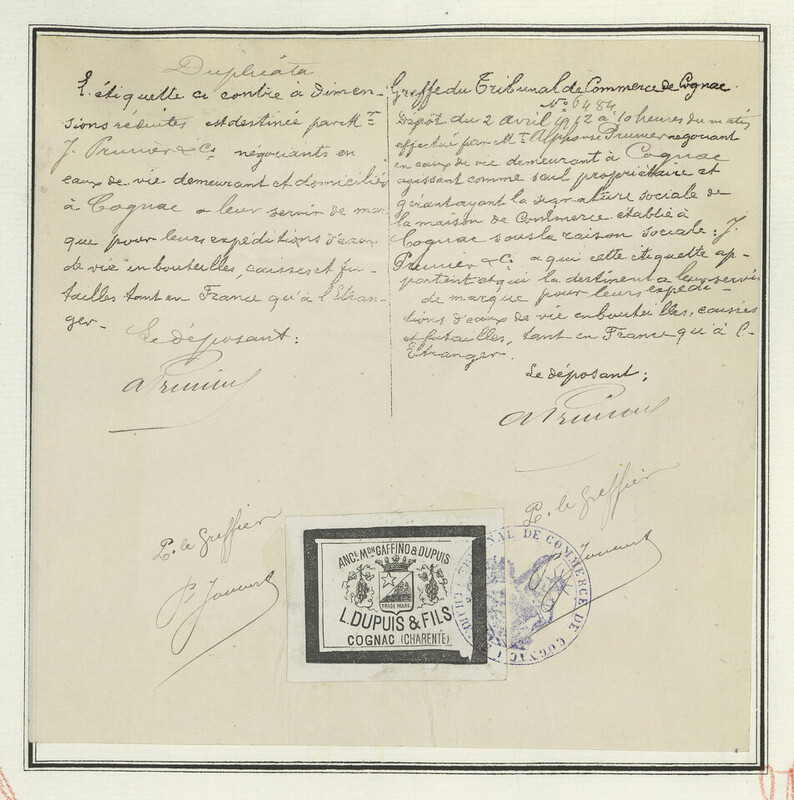 Duplicata
L'étiquette ci contre à dimen-
sions réduites est destinée par Mrs
J. Prunier & Cie négociants en
eaux de vie demeurant et domiciliés
à Cognac a leur servir de mar-
que pour leurs expéditions d'eaux
de vie en bouteilles, caisses et fu-
tailles tant en France qu'à l'Etran-
ger.
Le déposant:
A Prunier
P. le Greffier
Greffe du Tribunal de Commerce de Cognac.
No 6484
Dépôt du 2 avril à 10 heures du matin
effectué par Mr Alphonse Prunier négociant
en eaux de vie demeurant à Cognac
agissant comme seul propriétaire et
gérant ayant la signature sociale de
la maison de Commerce établie à
Cognac sous la raison sociale: J.
Prunier & Cie a qui cette étiquette ap-
partient et qui la destinent a leur servir
de marque pour leurs expédi-
tions d'eaux de vie en bouteilles, caisses
et futailles, tant en France qu'à l'-
Etranger.
Le déposant:
A Prunier
P. le Greffier
ANCNE MON GAFFINO & DUPUIS
TRADE MARK
L. DUPUIS & FILS
COGNAC (CHARENTE)
TRIBUNAL DE COMMERCE DE COGNAC